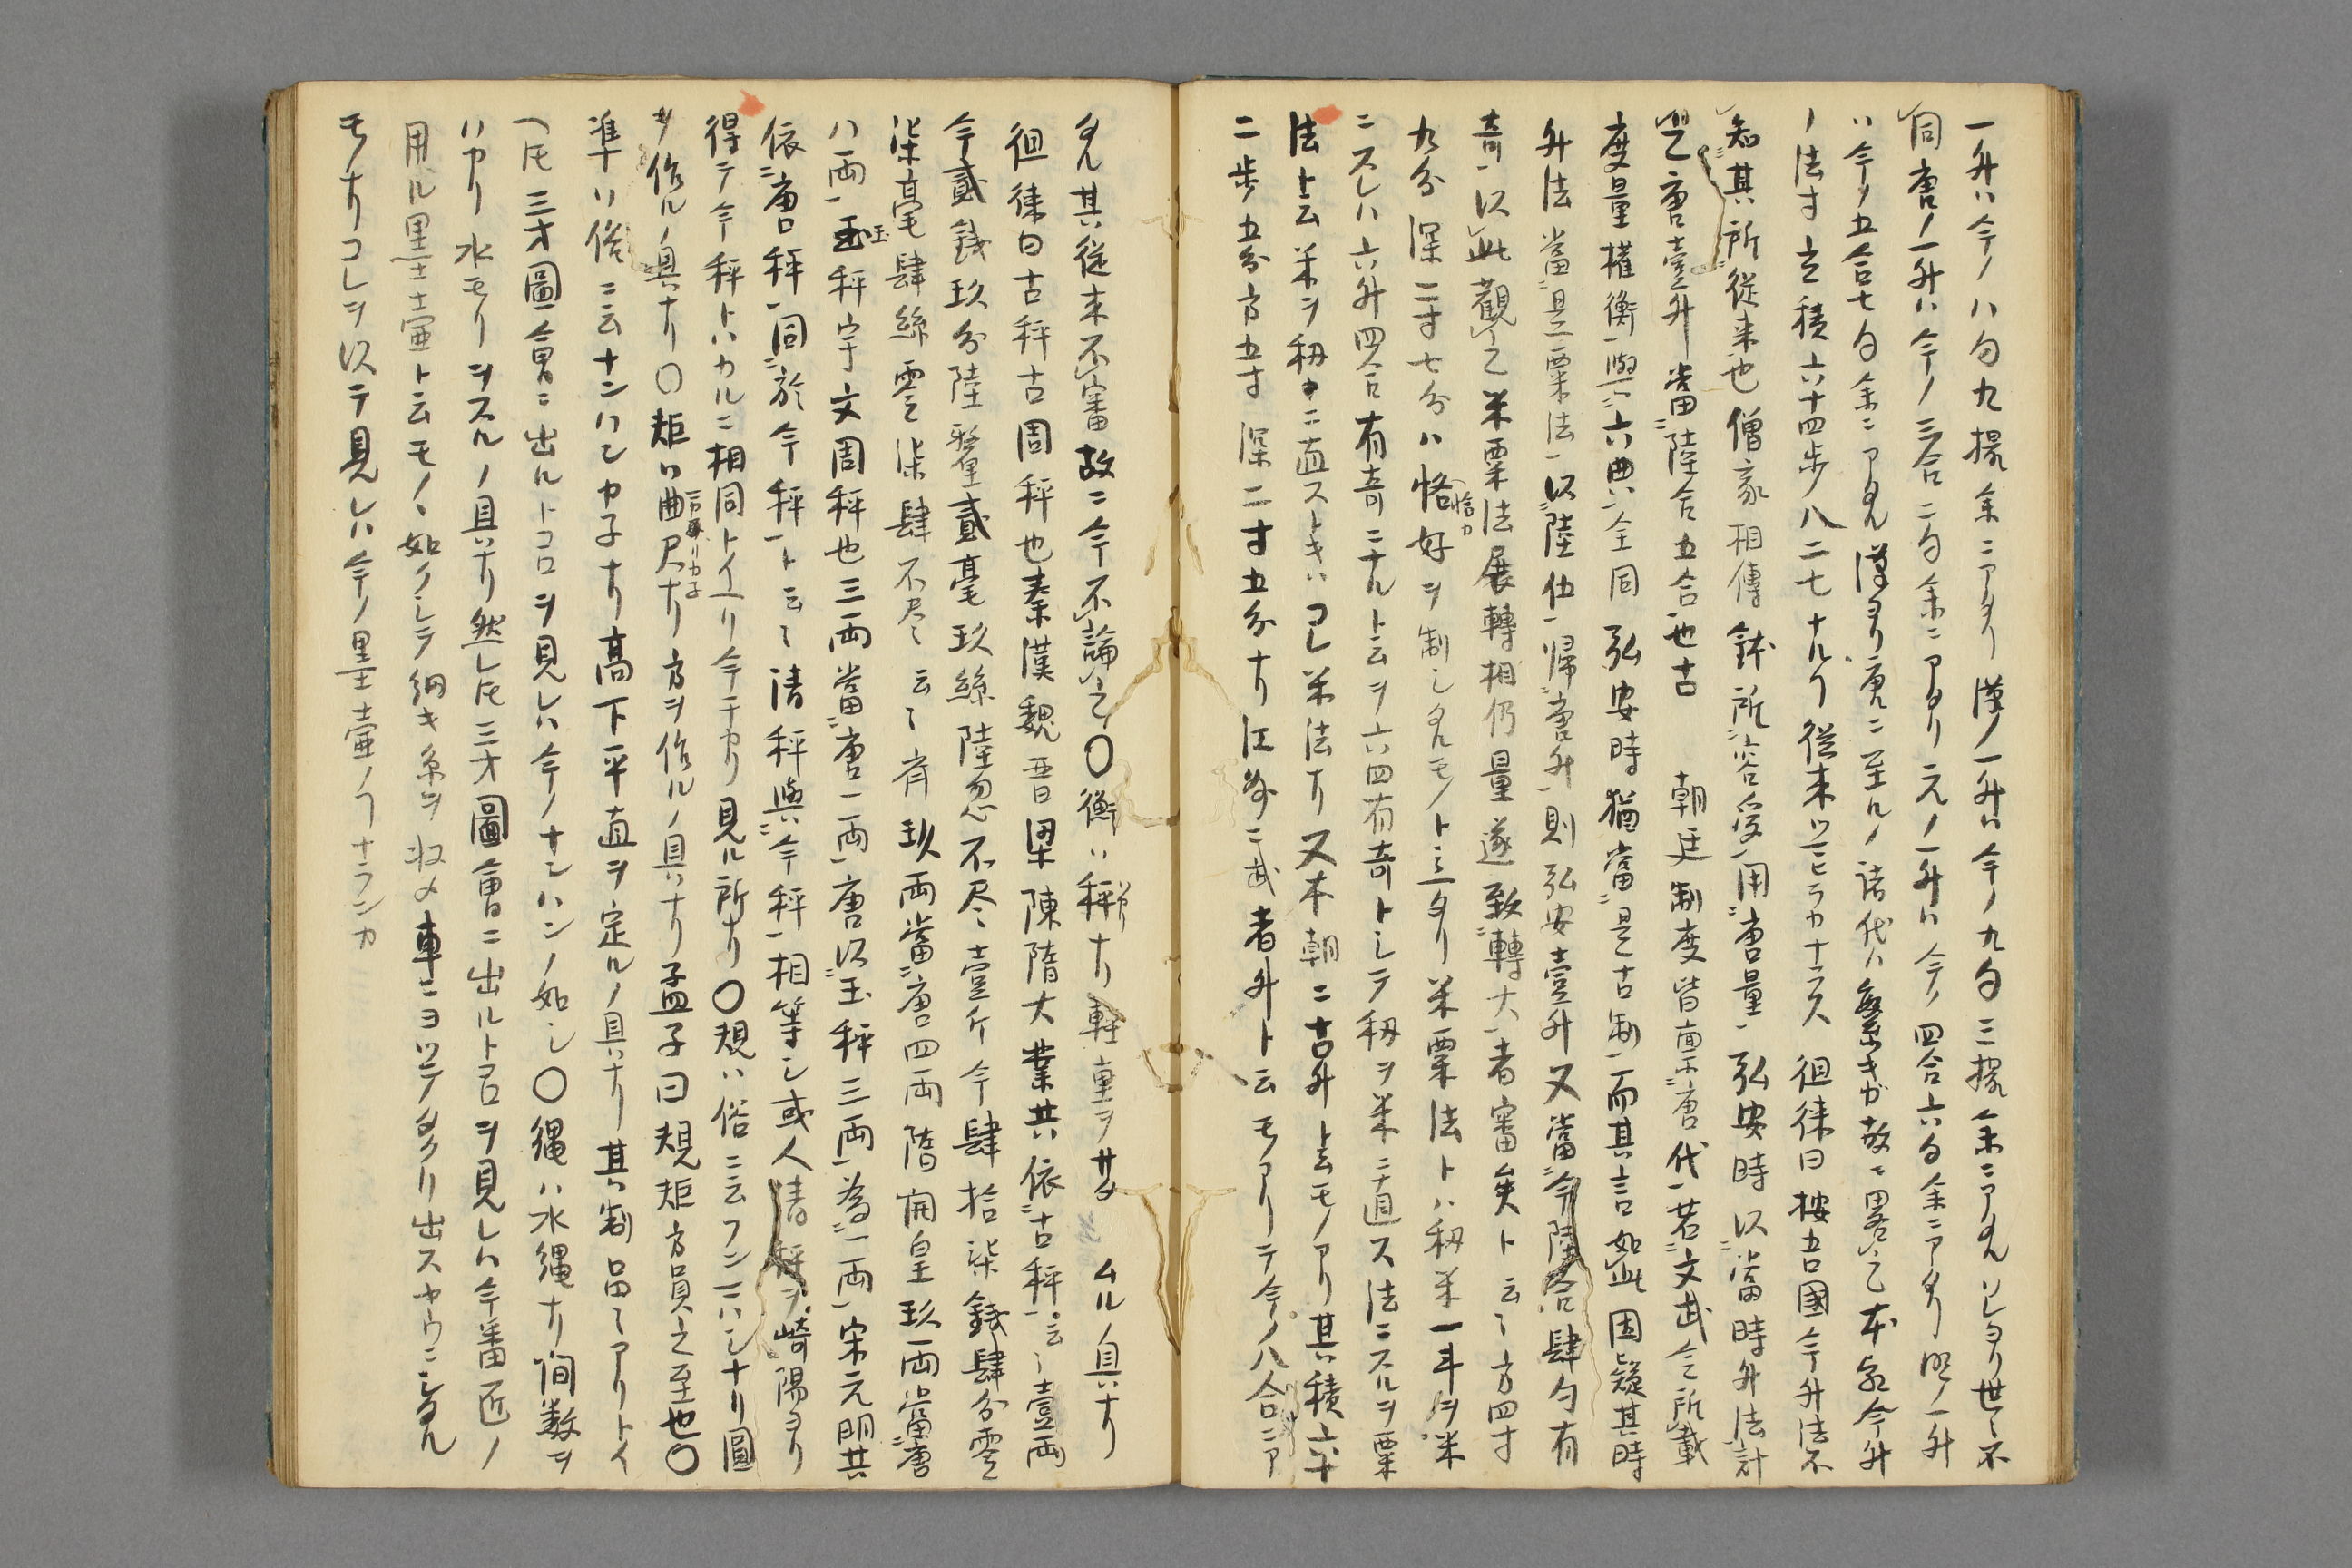 一升ハ今ノ八勺九撮余ニアタリ漢ノ一升ハ今ノ九勺三撮余ニアタルソレヨリ世々不
同唐ノ一升ハ今ノ三合二勺余ニアタリ元ノ一升ハ今ノ四合六勺余ニアタリ明ノ一升
ハ今ノ五合七勺余ニアタル漢ヨリ唐ニ至ルノ諸代ハ繁キガ故ニ畧之本朝今升
ノ法寸立積六十四歩八二七ナルヿ従来ツヒラカナラス徂徠曰按吾國今升法不
知其所従来也僧家相傳鉢所容受用唐量弘安時以當時升法計
之唐壹升當陸合五合也古 朝廷制度皆禀唐代若文武令所載
度量權衡與六典全同弘安時猶當是古制而其言如此固疑其時
升法當是粟法以陸伍歸唐升則弘安壹升又當今陸合肆勺有
奇以此觀之米粟法展轉相仍量遂致轉大者審矣ト云々方四寸
九分深二寸七分ハ恪好ヲ制シタルモノト云リ米粟法トハ籾米一斗ヲ米
ニスレハ六升四合有奇ニナルト云ヲ六四有奇トシテ籾ヲ米ニ直ス法ニスルヲ粟
法ト云米ヲ籾ニ直ストキハコレ米法ナリ又本朝ニ古升ト云モノアリ其積六十
二歩五分方五寸深二寸五分ナリ江次ニ武者升ト云モアリテ今ノ八合ニア
タル其従来不審故ニ今不論之〇衡ハ秤ナリ軽重ヲサタムルノ具ナリ
徂徠曰古秤古周秤也秦漢魏晋梁陳隋大業共依古秤云々壹両
今貳錢玖分陸釐貳毫玖絲陸忽不尽壹斤今肆拾柒錢肆分零
柒毫肆絲零柒肆不尽云々斉玖両當唐四両隋開皇玖両當唐
八両玉秤宇文周秤也三両當唐一両唐以玉秤三両為一両宋元明共
依唐秤同於今秤ト云々清秤與今秤相等シ或人清秤ヲ崎陽ヨリ
得テ今秤トハカルニ相同トイヘリ今千カリ見ル所ナリ〇規ハ俗ニ云フンマハシナリ圓
ヲ作ルノ具ナリ〇矩ハ曲尺ナリ方ヲ作ルノ具ナリ孟子曰規矩方員之至也〇
準ハ俗ニ云ナンハンカ子ナリ高下平直ヲ定ルノ具ナリ其制品々アリトイ
ヘ𪜈三才圖會ニ出ルトコロヲ見レハ今ノナンハンノ如シ〇縄ハ水縄ナリ間数ヲ
ハカリ水モリヲスルノ具ナリ然レ𪜈三才圖會ニ出ル所ヲ見レハ今番匠ノ
用ル墨壷ト云モノヽ如クシテ綱キ糸ヲ収メ車ニヨツテタクリ出スヤウニシタル
モノナリコレヲ以テ見レハ今ノ墨壷ノヿナランカ